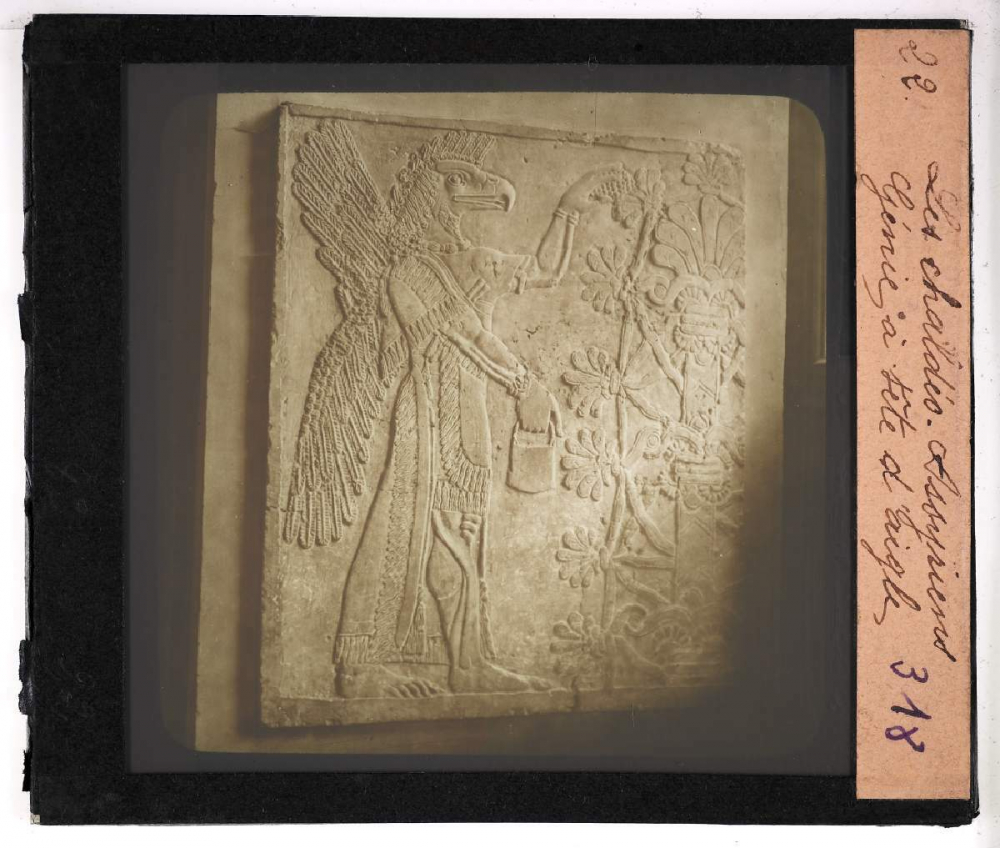 22. Les chaldéo-Assyriens
Génie, à tête d'aigle
318